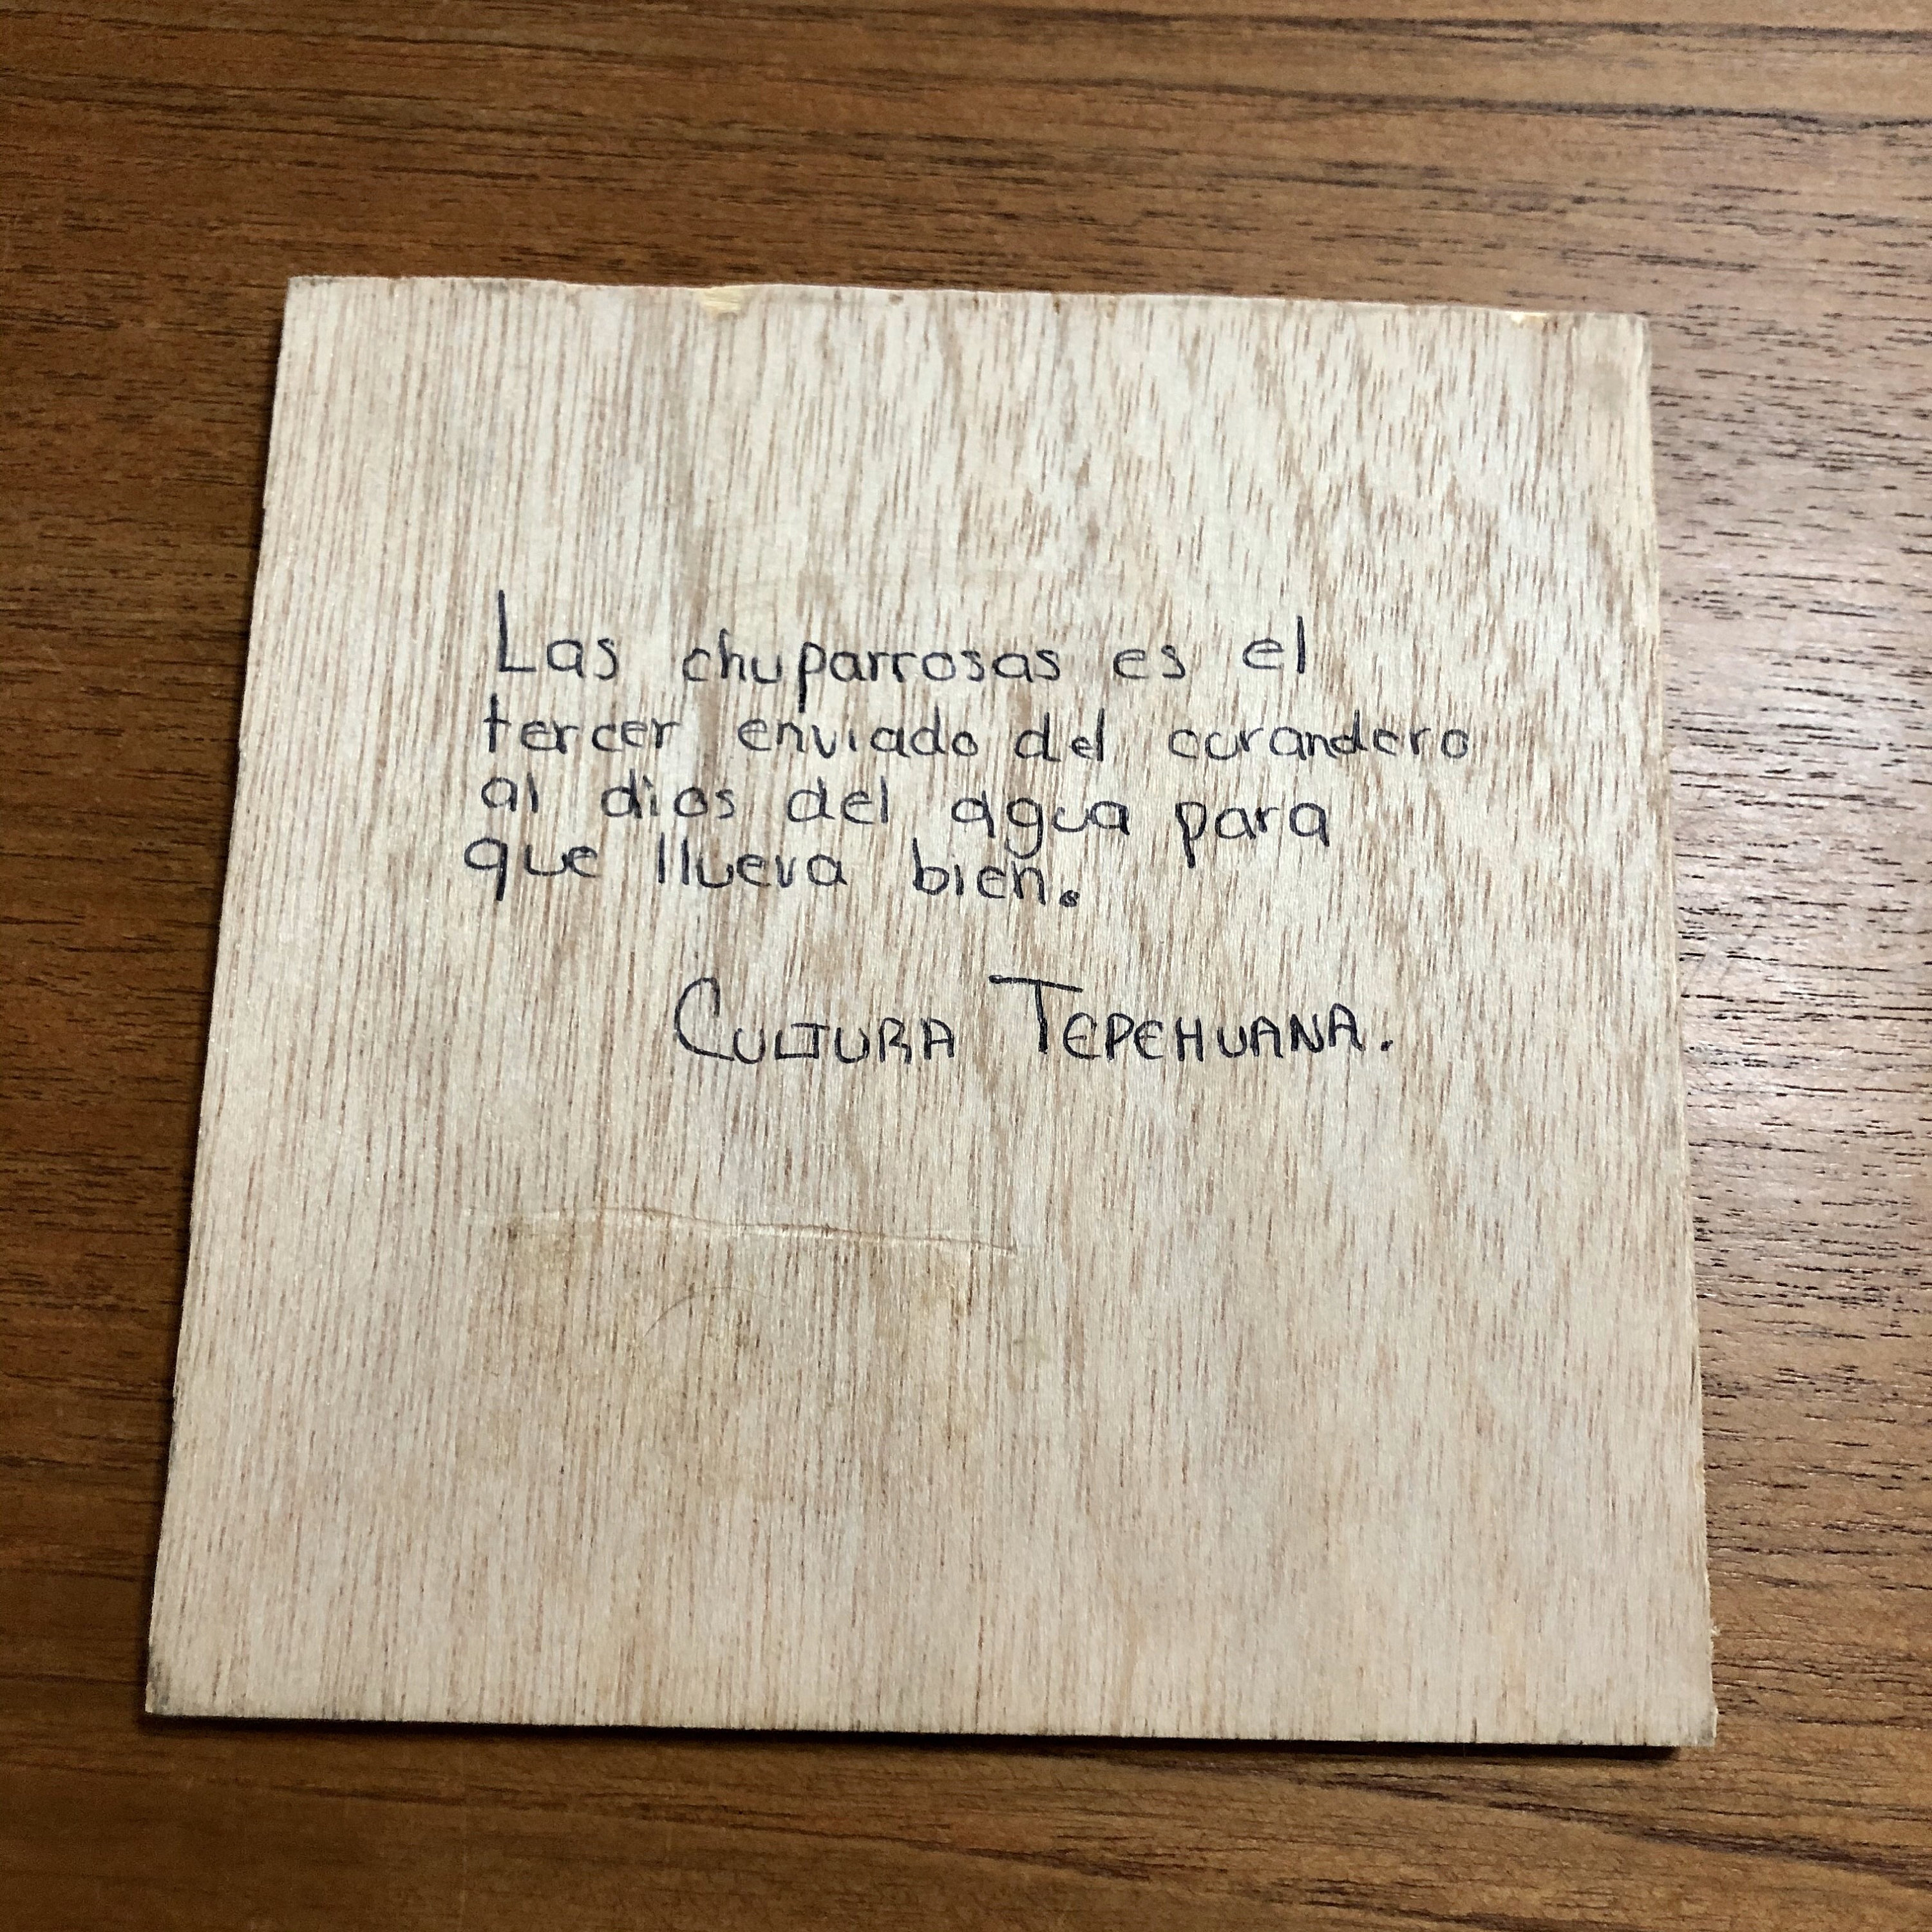 Las chuparrosas es el
tercer enviado del curandero
al dios del agua para
que llueva bien.
CULTURA TEPEHUANA.